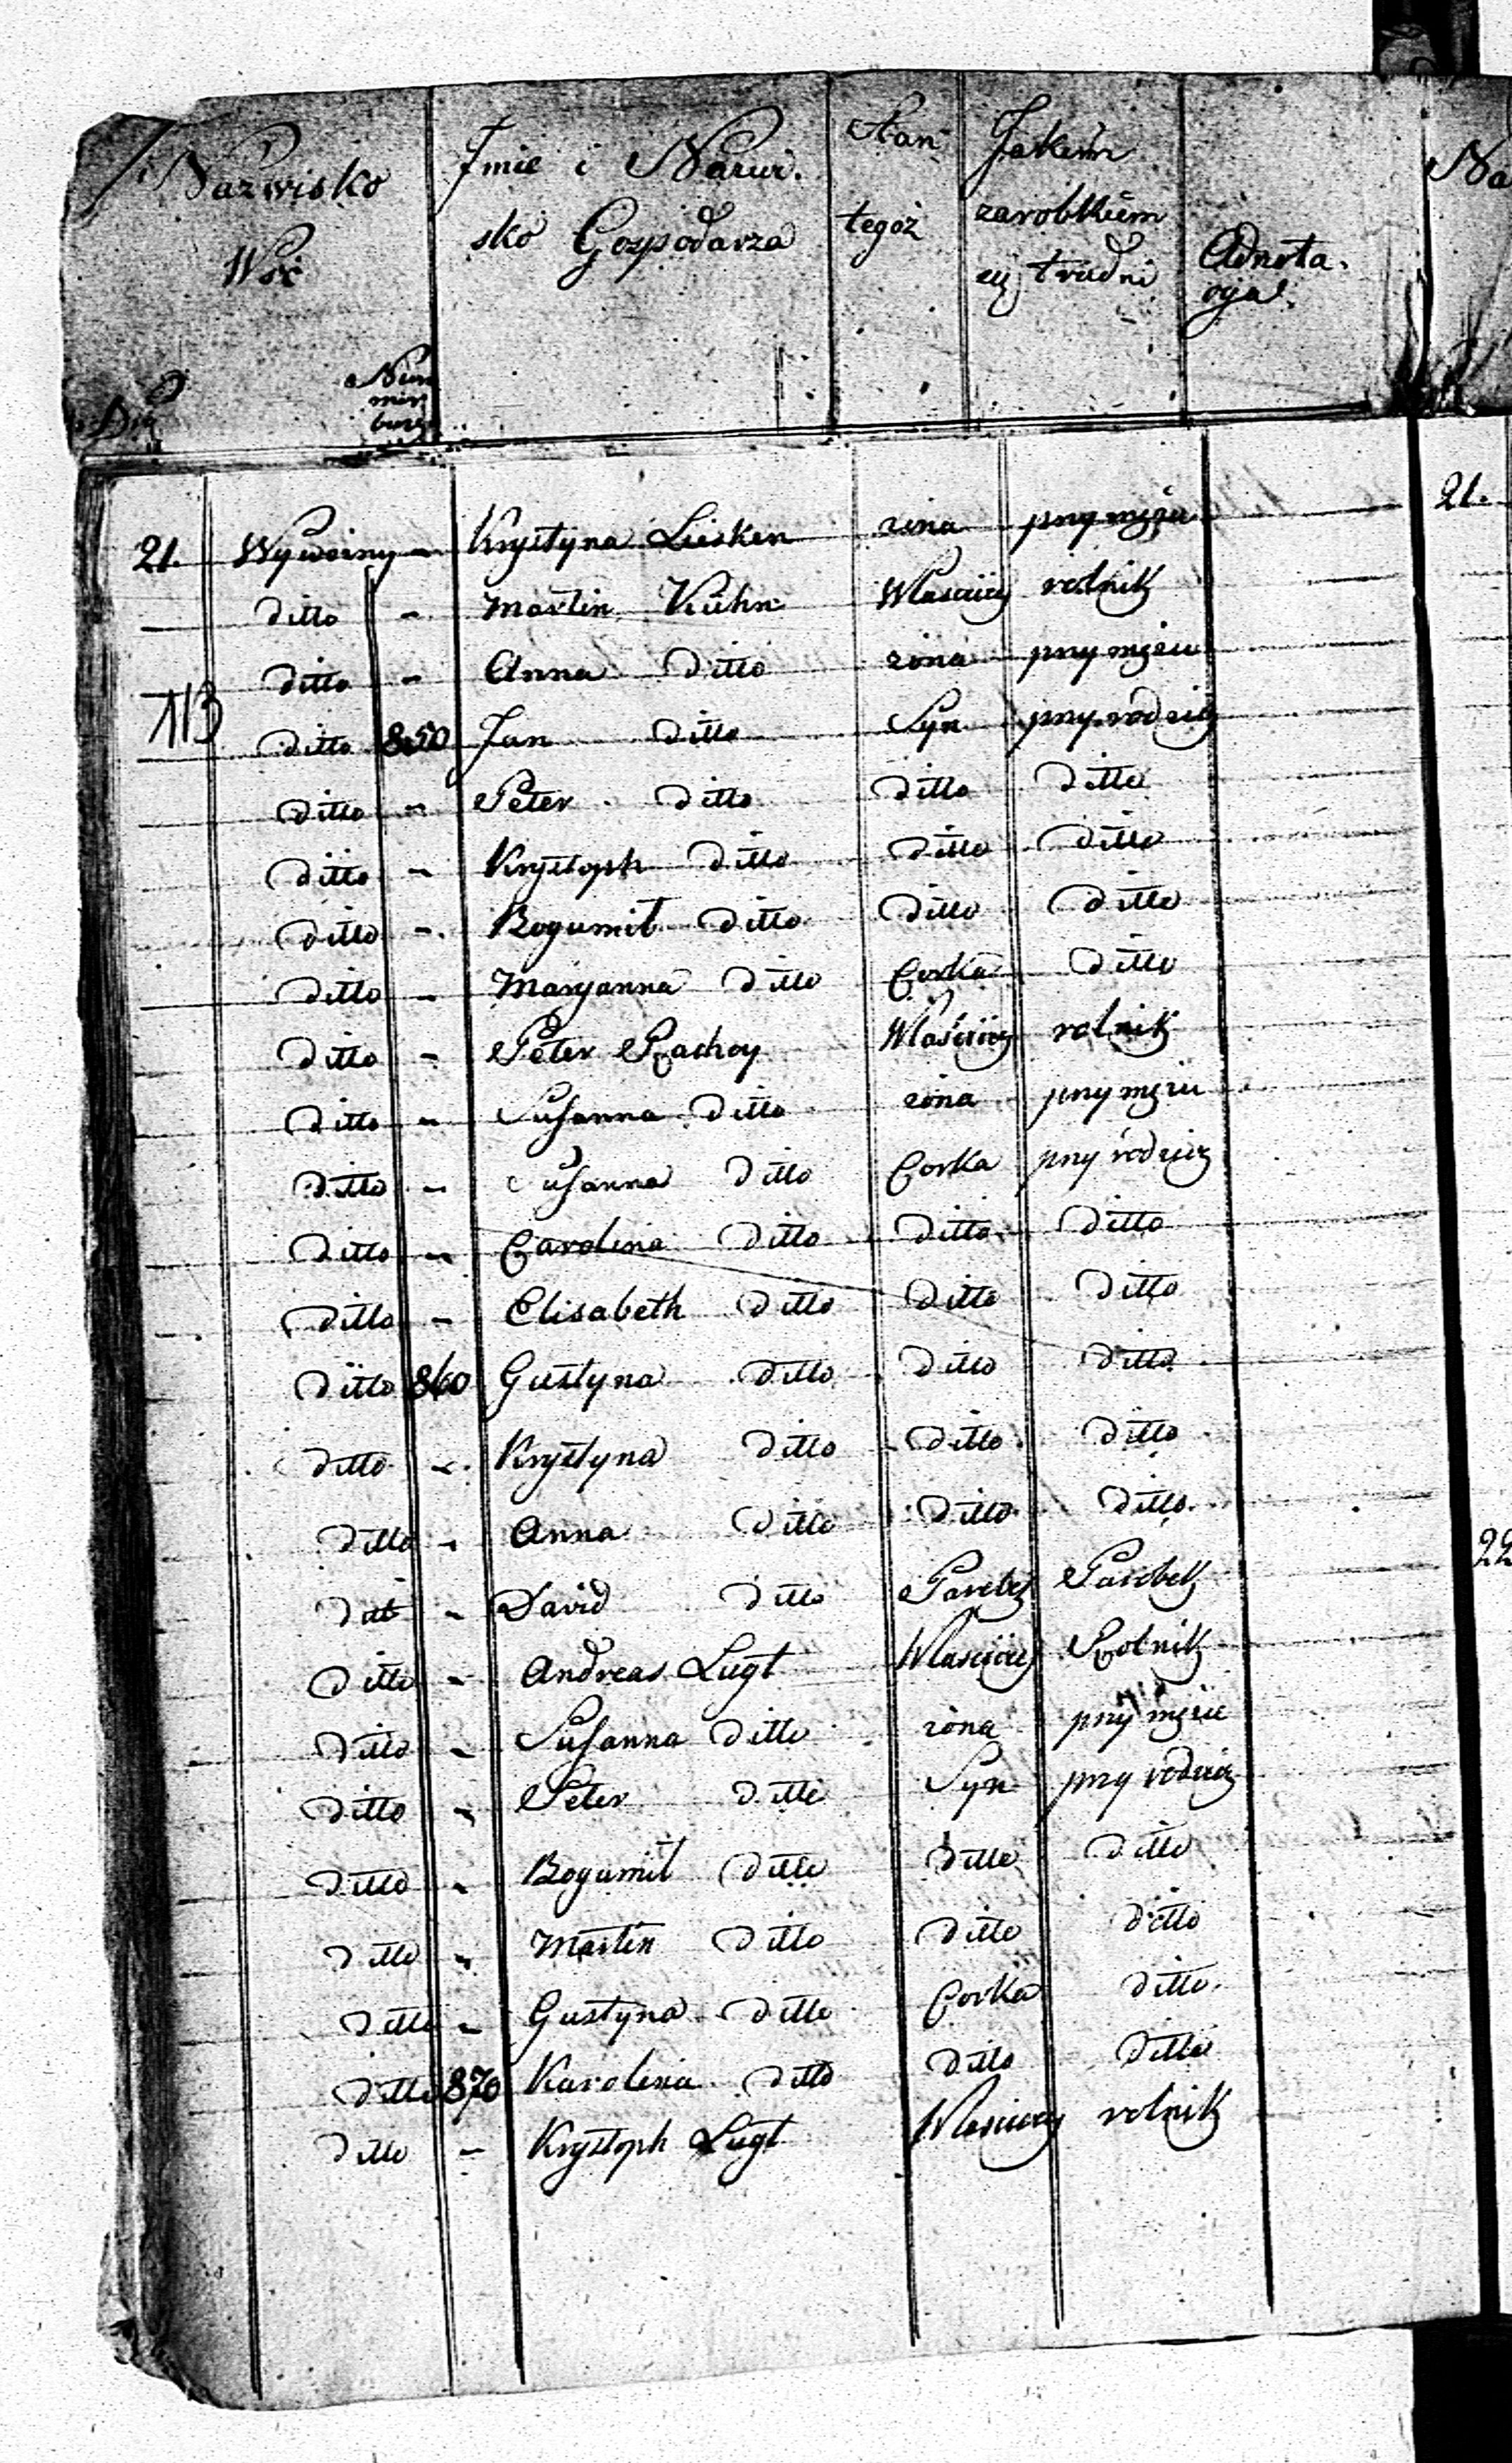 Nazwisko Wsi
Num mer burg
Imie i Nazwi. sko Gospodarza
Stan tegoż
Jakiem zarobkiem się trudni
Adnota. cya.
21. Wyworiny - Krystyna Liesken żona przy mężu
ditto - Martin Kühn Właściciel rolnik
ditto - Anna ditto żona przy mężu
113
ditto 850 Jan ditto Syn przy rodzic
ditto - Peter ditto ditto ditto
ditto - Krystoph ditto ditto ditto
ditto - Bogumił ditto ditto ditto
ditto - Maryanna ditto Corka ditto
ditto - Peter Rachoy Właściciel rolnik
ditto - Susanna ditto żona przy mężu
ditto - Susanna ditto Corka przy rodzic
ditto - Carolina ditto ditto ditto
ditto - Elisabeth ditto ditto ditto
ditto 860 Gustyna ditto ditto ditto
ditto - Krystyna ditto ditto ditto
ditto - Anna ditto ditto ditto
ditto - David ditto Parobek Parobek
ditto - Andreas Lugt Właściciel Rolnik
ditto - Susanna ditto żona przy mężu
ditto - Peter ditto Syn przy rodzic
ditto - Bogumił ditto ditto ditto
ditto - Martin ditto ditto ditto
ditto - Gustyna ditto Corka ditto
ditto 870 Karolina ditto ditto ditto
ditto - Krystoph Lugt Właściciel rolnik
Na
21.
22